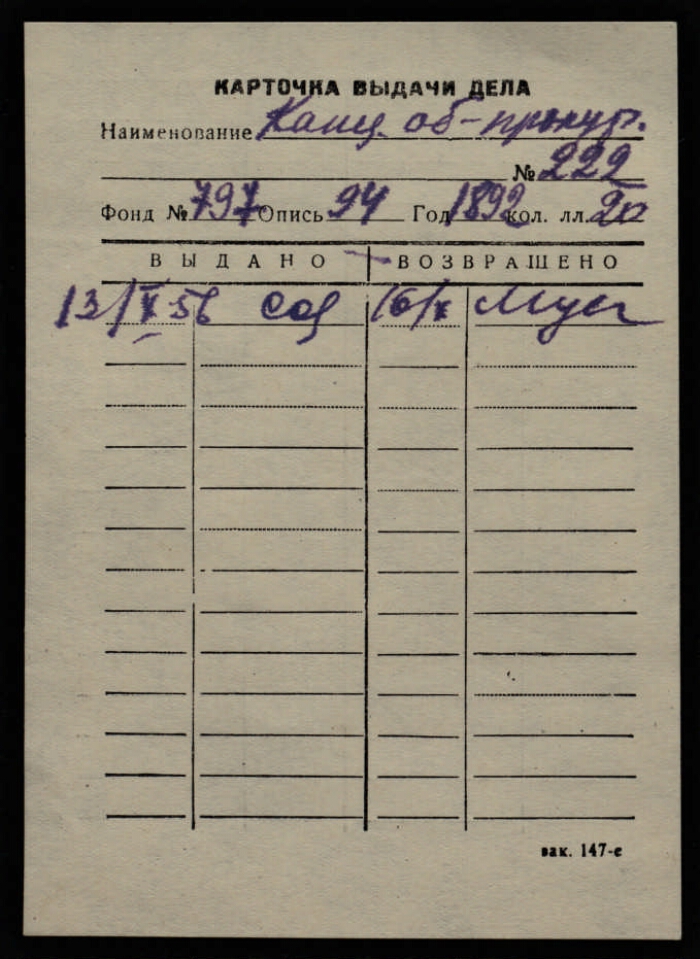 КАРТОЧКА ВЫДАЧИ ДЕЛА
Наименование Канц. об-прокур.
№ 222
Фонд № 797 Опись 94 Год 1892 кол. лл. 20
ВЫДАНО ВОЗВРАЩЕНО
13/X 56 16/X
зак. 147-е